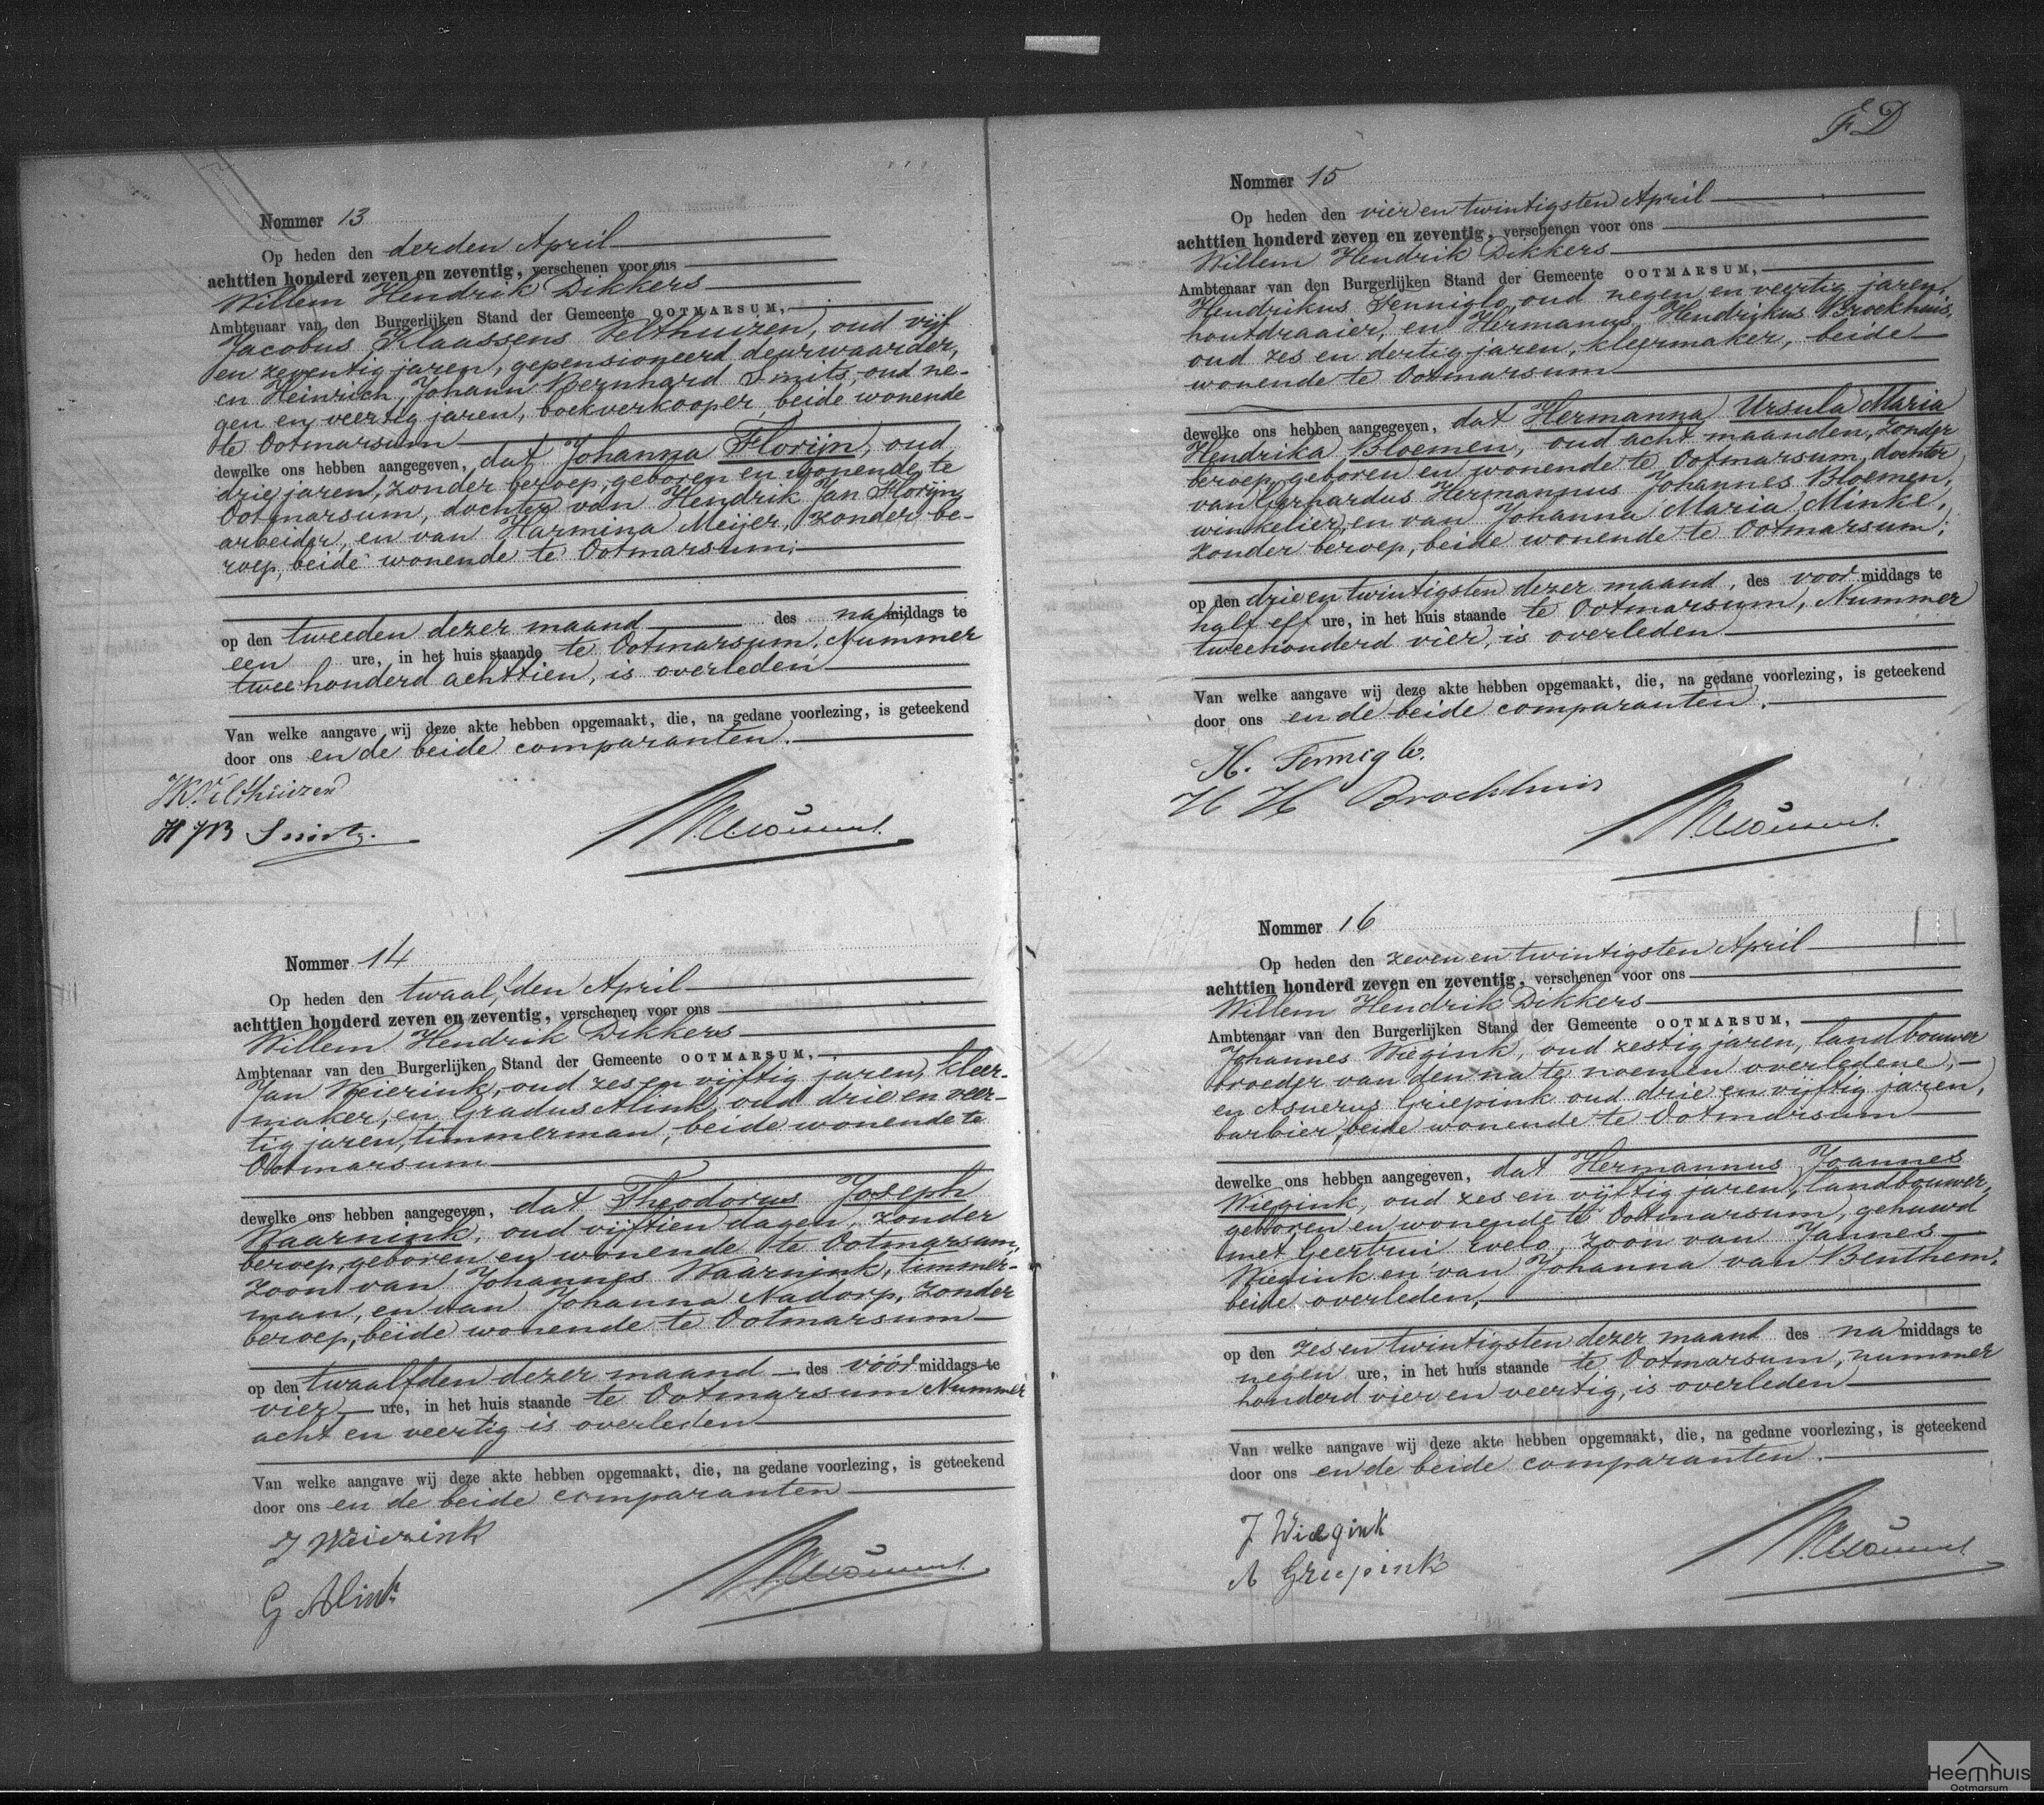 Nommer 13
Op heden den derden April
achttien honderd zeven en zeventig, verschenen voor ons
Willem Hendrik Dikkers
Ambtenaar van den Burgerlijken Stand der Gemeente OOTMARSUM,
Jacobus Klaassens Velthuizen, oud vijf
en zeventig jaren, gepensioneerd deurwaarder,
en Heinrich Johann Bernhard Smits, oud ne-
gen en veertig jaren, boekverkooper, beide wonende
te Ootmarsum
dewelke ons hebben aangegeven, dat Johanna Florijn, oud
drie jaren, zonder beroep, geboren en wonende te
Ootmarsum, dochter van Hendrik Jan Florijn,
arbeider, en van Harmina Meijer, zonder be-
roep, beide wonende te Ootmarsum;
op den tweeden dezer maand des na middags te
een ure, in het huis staande te Ootmarsum, Nummer
tweehonderd achttien, is overleden
Van welke aangave wij deze akte hebben opgemaakt, die, na gedane voorlezing, is geteekend
door ons en de beide comparanten.
JK Velthuizen
HJB Smits
Nommer 14
Op heden den twaalfden April
achttien honderd zeven en zeventig, verschenen voor ons
Willem Hendrik Dikkers
Ambtenaar van den Burgerlijken Stand der Gemeente OOTMARSUM,
Jan Weierink, oud zes en vijftig jaren, kleer-
maker, en Gradus Alink, oud drie en veer-
tig jaren, timmerman, beide wonende te
Ootmarsum
dewelke ons hebben aangegeven, dat Theodorus Joseph
Waarnink, oud vijftien dagen, zonder
beroep, geboren en wonende te Ootmarsum,
zoon van Johannes Waarnink, timmer-
man, en van Johanna Nadorp, zonder
beroep, beide wonende te Ootmarsum
op den twaalfden dezer maand des vóór middags te
vier ure, in het huis staande te Ootmarsum Nummer
acht en veertig is overleden
Van welke aangave wij deze akte hebben opgemaakt, die, na gedane voorlezing, is geteekend
door ons en de beide comparanten
J Weierink
G Alink
FD
Nommer 15
Op heden den vier en twintigsten April
achttien honderd zeven en zeventig, verschenen voor ons
Willem Hendrik Dikkers
Ambtenaar van den Burgerlijken Stand der Gemeente OOTMARSUM,
Hendrikus Tenniglo, oud negen en veertig jaren,
houtdraaier, en Hermanus Hendrikus Broekhuis,
oud zes en dertig jaren, kleermaker, beide
wonende te Ootmarsum
dewelke ons hebben aangegeven, dat Hermanna Ursula Maria
Hendrika Bloemen, oud acht maanden, zonder
beroep, geboren en wonende te Ootmarsum, dochter
van Gerhardus Hermannus Johannes Bloemen,
winkelier, en van Johanna Maria Minke,
zonder beroep, beide wonende te Ootmarsum;
op den drie en twintigsten dezer maand, des voor middags te
half elf ure, in het huis staande te Ootmarsum, Nummer
tweehonderd vier, is overleden
Van welke aangave wij deze akte hebben opgemaakt, die, na gedane voorlezing, is geteekend
door ons en de beide comparanten.
H. Tenniglo.
H H Broekhuis
Nommer 16
Op heden den zeven en twintigsten April
achttien honderd zeven en zeventig, verschenen voor ons
Willem Hendrik Dikkers
Ambtenaar van den Burgerlijken Stand der Gemeente OOTMARSUM,
Johannes Wiegink, oud zestig jaren, landbouwer
broeder van den na te noemen overledene,
en Asuerus Griepink oud drie en vijftig jaren,
barbier, beide wonende te Ootmarsum
dewelke ons hebben aangegeven, dat Hermannus Joannes
Wiegink, oud zes en vijftig jaren, landbouwer,
geboren en wonende te Ootmarsum, gehuwd
met Geertrui Evelo, zoon van Jannes
Wiegink en van Johanna van Benthem,
beide overleden,
op den zes en twintigsten dezer maand des na middags te
negen ure, in het huis staande te Ootmarsum, nummer
honderd vier en veertig, is overleden
Van welke aangave wij deze akte hebben opgemaakt, die, na gedane voorlezing, is geteekend
door ons en de beide comparanten.
J Wiegink
A Griepink
Heemhuis
Ootmarsum